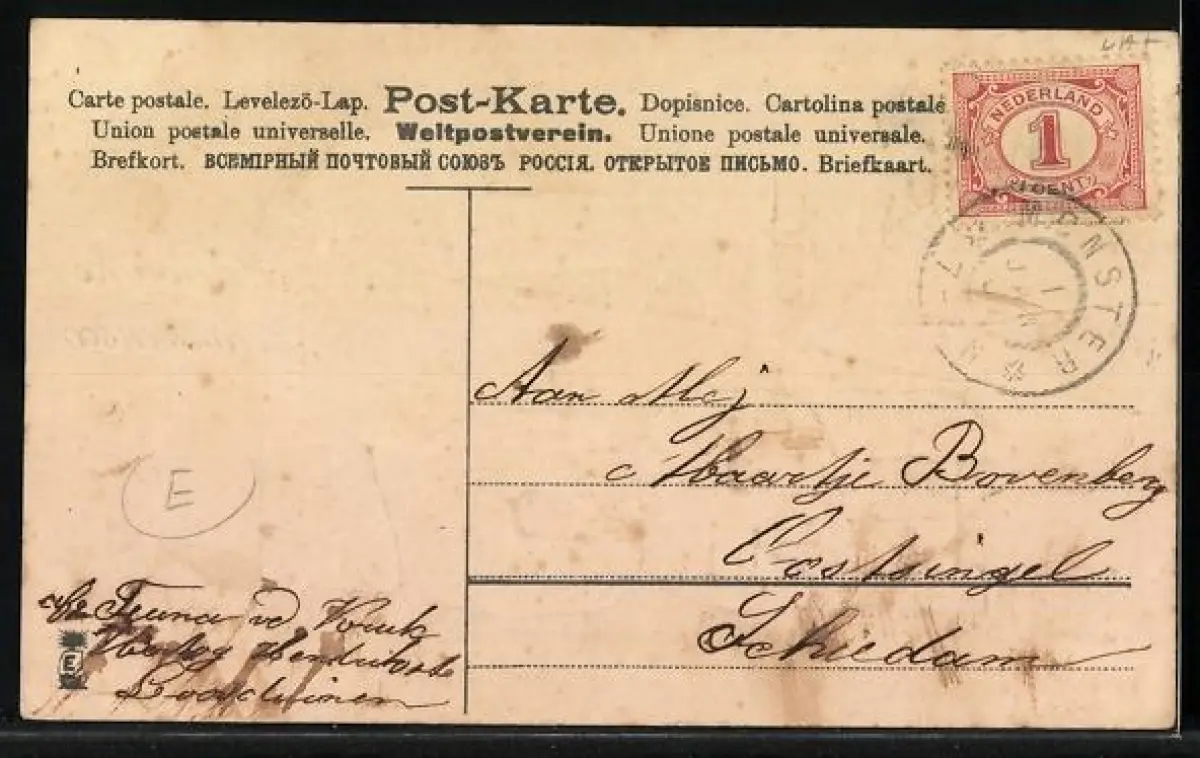 Carte postale. Levelezö-Lap. Post-Karte. Dopisnice. Cartolina postale
Union postale universelle. Weltpostverein. Unione postale universale.
Brefkort. ВСЕМІРНЫЙ ПОЧТОВЫЙ СОЮЗЪ РОССІЯ. ОТКРЫТОЕ ПИСЬМО. Briefkaart.
NEDERLAND
1
1 CENT
MONSTER
Aan Mej
Maartje Bovenberg
Oostsingel
Schiedam
E
Afz Teuna vd
Loosduinen